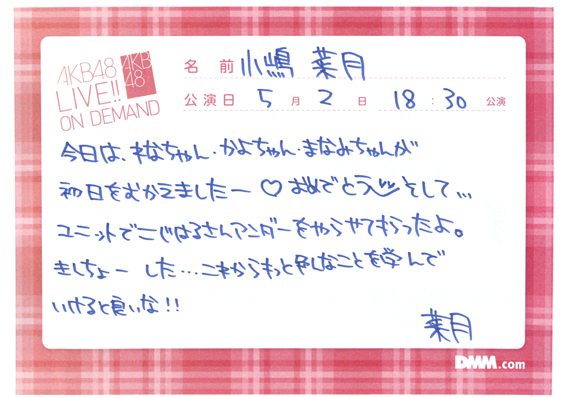 AKB48
LIVE!!
ON DEMAND
AKB
48
名前 小嶋 菜月
公演日 5月2日 18:30公演
今日は、ねなちゃん・かよちゃん・まなみちゃんが
初日をむかえましたー♡おめでとう そして...
ユニットでこじはるさんアンダーをやらせてもらったよ。
きんちょー した...これからもっと色んなことを学んで
いけると良いな!!
菜月
DMM.com